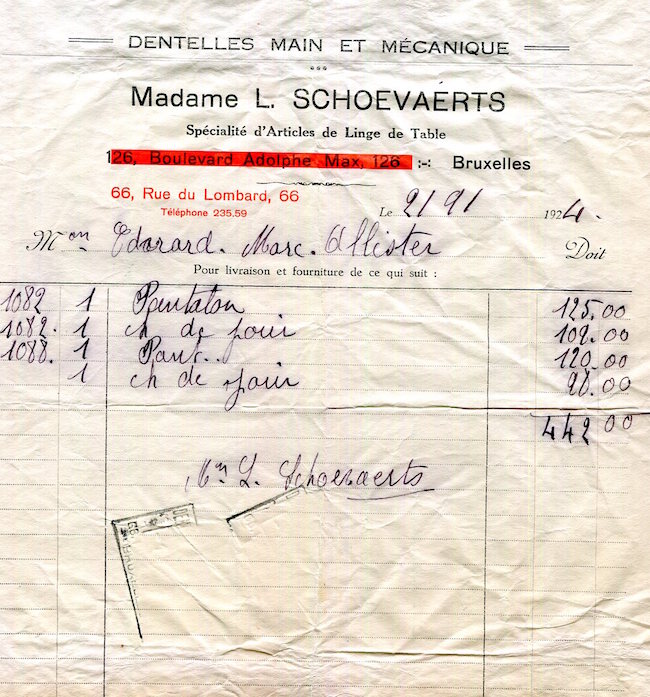 DENTELLES MAIN ET MÉCANIQUE
Madame L. SCHOEVAERTS
Spécialité d'Articles de Linge de Table
126, Boulevard Adolphe Max, 126 :-: Bruxelles
66, Rue du Lombard, 66
Téléphone 235.59
Le 2/9/ 1924.
Mon Edorard. Marc. Allister Doit
Pour livraison et fourniture de ce qui suit :
1082 1 Pantalon 125.00
1082. 1 ch de jour 109.00
1088. 1 Pant.. 120.00
1 ch de jour 88.00
442 00
Mn L. Schoevaerts